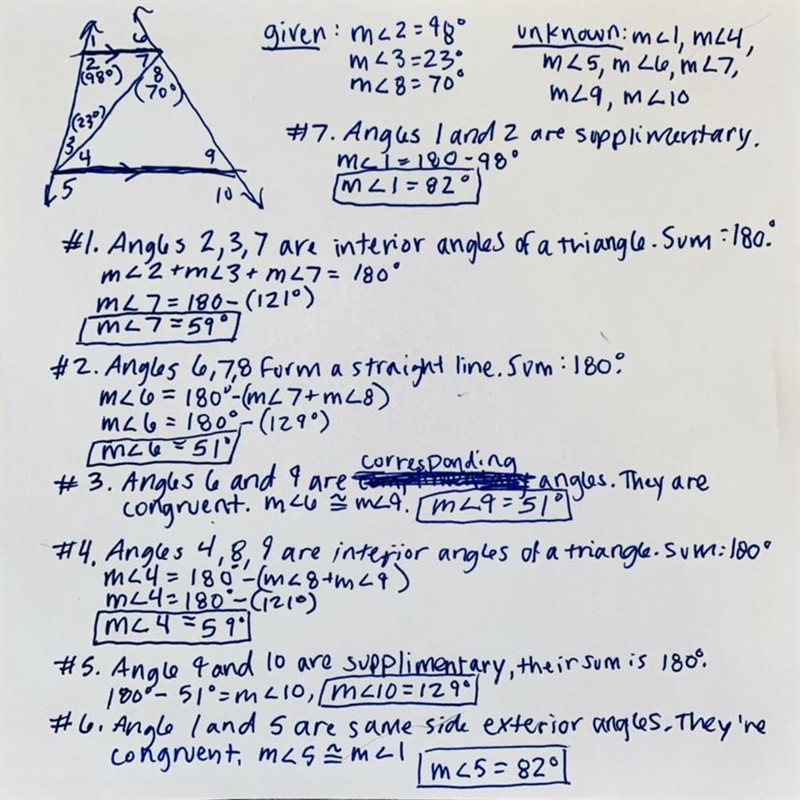 given: m∠2=98°
m∠3=23°
m∠8=70°
unknown: m∠1, m∠4,
m∠5, m∠6, m∠7,
m∠9, m∠10
1
6
2
7
8
(98°)
(70°)
(23°)
3
4
9
5
10
#7. Angles 1 and 2 are supplimentary.
m∠1=180-98°
m∠1=82°
#1. Angles 2,3,7 are interior angles of a triangle. Sum=180°.
m∠2+m∠3+m∠7=180°
m∠7=180-(121°)
m∠7=59°
#2. Angles 6,7,8 form a straight line. Sum:180°.
m∠6=180°-(m∠7+m∠8)
m∠6=180°-(129°)
m∠6=51°
#3. Angles 6 and 9 are corresponding angles. They are
congruent. m∠6≅m∠9. m∠9=51°
#4. Angles 4,8,9 are interior angles of a triangle. Sum:180°
m∠4=180°-(m∠8+m∠9)
m∠4=180°-(121°)
m∠4=59°
#5. Angle 9 and 10 are supplimentary, their sum is 180°.
180°-51°=m∠10, m∠10=129°
#6. Angle 1 and 5 are same side exterior angles. They're
congruent. m∠5≅m∠1 m∠5=82°